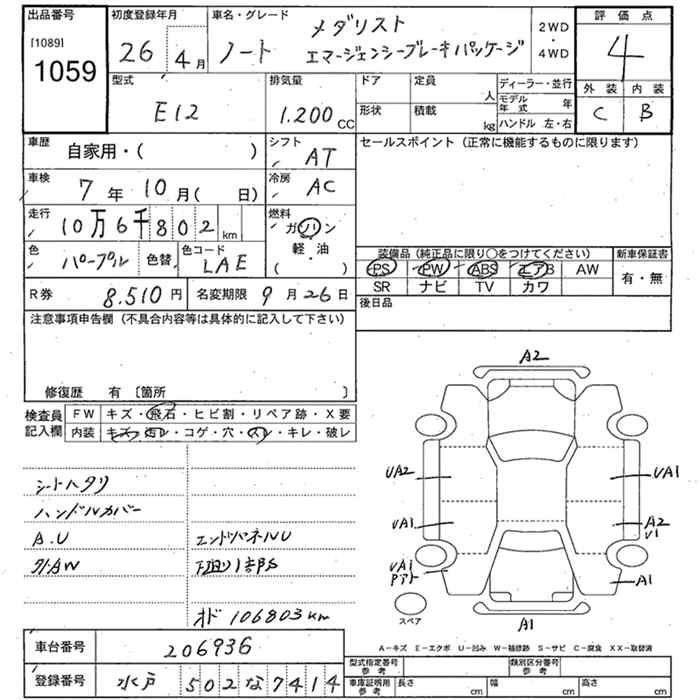 出品番号 初度登録年月 車名・グレード メダリスト 2WD・4WD 評価点
[1089]
1059 26 4月 ノート エマージェンシーブレーキパッケージ 4
型式 排気量 ドア 定員 人 ディーラー・並行 外装 内装
E12 1.200cc 形状 積載 kg モデル年式 年 C B
ハンドル 左・右
車歴 自家用・( ) シフト AT セールスポイント (正常に機能するものに限ります)
車検 7年 10月( 日) 冷房 AC
走行 10万6千802km 燃料 ガソリン・軽油
色 パープル 色替 色コード LAE ( )
装備品 (純正品に限り○をつけてください) 新車保証書
PS PW ABS エアB AW 有・無
SR ナビ TV カワ
R券 8.510円 名変期限 9月26日 後日品
注意事項申告欄 (不具合内容等は具体的に記入して下さい)
修復歴 有 〔箇所 〕
検査員記入欄 FW キズ・飛石・ヒビ割・リペア跡・X要
内装 キズ・汚レ・コゲ・穴・スレ・キレ・破レ
シートヘタリ
ハンドルカバー
A.U エンドパネルU
外AW 下廻り1部S
オド 106803km
A2
UA2 UA1
UA1 A2
U1
UA1
A1
A1
スペア
A-キズ E-エクボ U-凹み W-補修跡 S-サビ C-腐食 XX-取替済
車台番号 206936
登録番号 水戸 502な7414
型式指定番号 参考 類別区分番号 参考
車庫証明用 参考 長さ cm 幅 cm 高さ cm